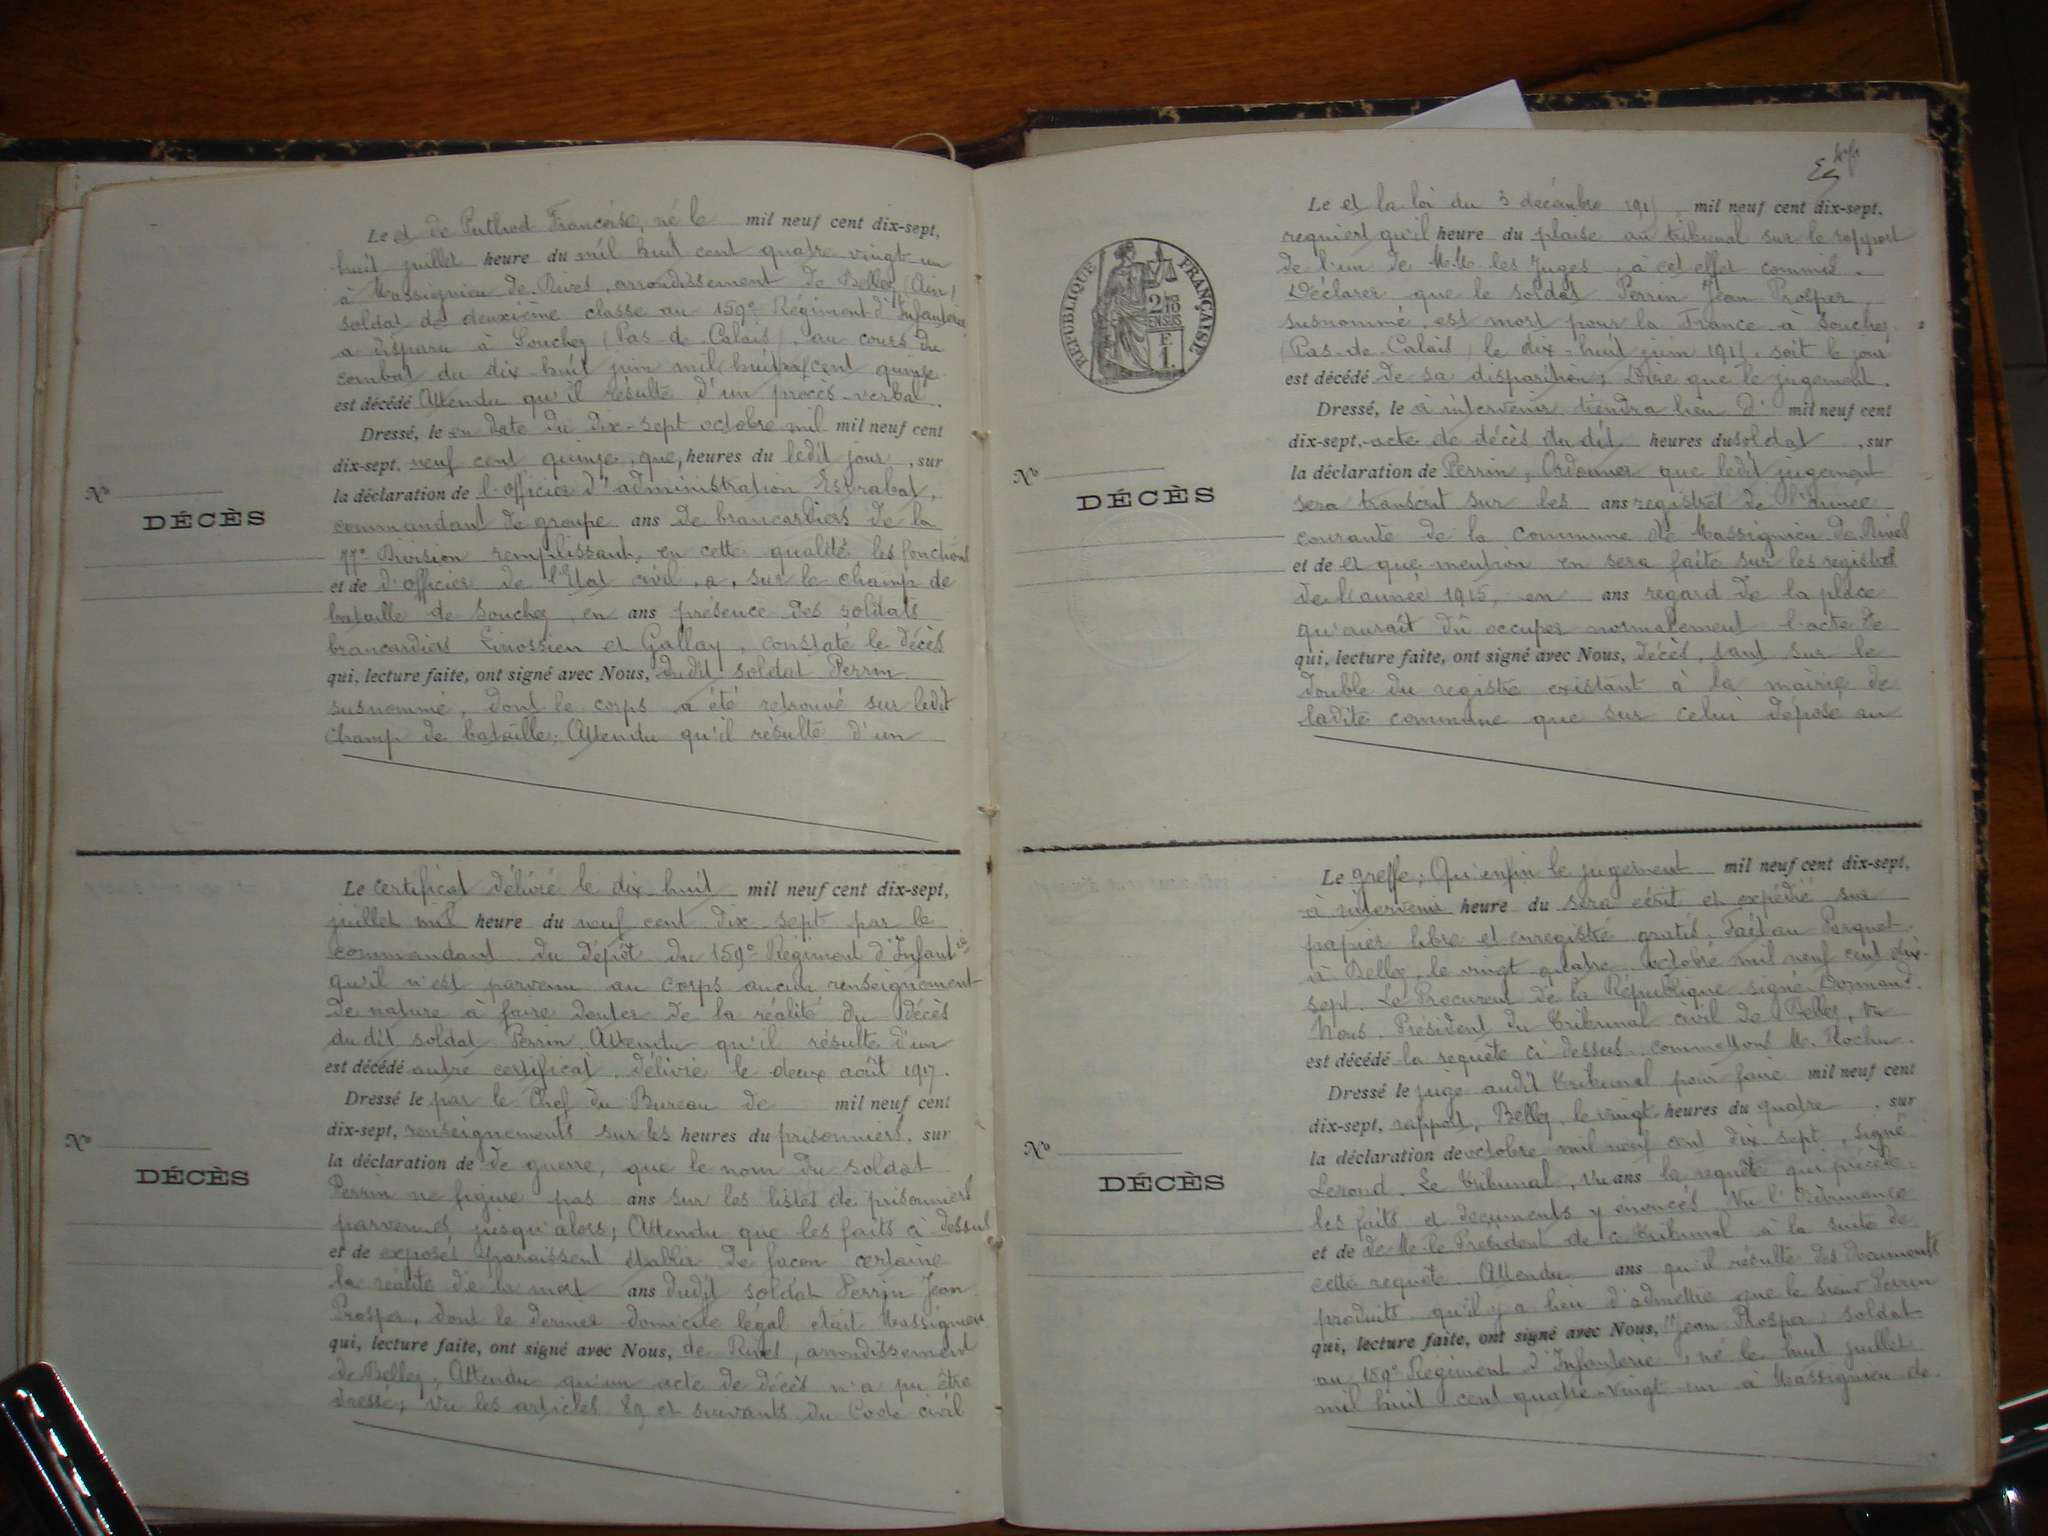 Le et de Puthod Françoise, né le mil neuf cent dix-sept,
huit juillet heure du mil huit cent quatre vingt un
à Massignieu de Rives, arrondissement de Belley (Ain)
soldat de deuxième classe au 159e Régiment d'Infanterie
a disparu à Souchez (Pas-de-Calais), au cours du
combat du dix-huit juin mil huit cent quinze
est décédé Attendu qu'il résulte d'un procès-verbal
Dressé, le en date du dix-sept octobre mil mil neuf cent
dix-sept, neuf cent quinze, que, heures du ledit jour, sur
la déclaration de l'officier d'administration Escrabat,
commandant de groupe ans de brancardiers de la
77e Division remplissant, en cette qualité les fonctions
et de d'officier de l'Etat civil, a, sur le champ de
bataille de Souchez, en ans présence des soldats
brancardiers Linossien et Gallay, constaté le décès
qui, lecture faite, ont signé avec Nous, dudit soldat Perrin
susnommé, dont le corps a été retrouvé sur ledit
champ de bataille; Attendu qu'il résulte d'un
No
DÉCÈS
Le certificat délivré le dix-huit mil neuf cent dix-sept,
juillet mil heure du neuf cent dix-sept par le
commandant du dépôt du 159e Régiment d'Infantie
qu'il n'est parvenu au corps aucun renseignement
de nature à faire douter de la réalité du décès
du dit soldat Perrin, Attendu qu'il résulte d'un
est décédé autre certificat, délivré le deux août 1917.
Dressé le par le Chef du Bureau de mil neuf cent
dix-sept, renseignements sur les heures du prisonniers, sur
la déclaration de de guerre, que le nom du soldat
Perrin ne figure pas ans sur les listes de prisonniers
parvenues jusqu'alors; Attendu que les faits ci dessus
et de exposés paraissent établir de façon certaine
la réalité de la mort ans dudit soldat Perrin Jean
Prosper, dont le dernier domicile légal était Massignieu
qui, lecture faite, ont signé avec Nous, de Rives, arrondissement
de Belley, Attendu qu'un acte de décès n'a pu être
dressé; Vu les articles 89 et suivants du Code civil
No
DÉCÈS
Le et la loi du 3 décembre 1915 mil neuf cent dix-sept,
requiert qu'il heure du plaise au tribunal sur le rapport
de l'un de M.M. les Juges, à cet effet commis.
Déclarer que le soldat Perrin Jean Prosper,
susnommé, est mort pour la France à Souchez
(Pas-de-Calais) le dix-huit juin 1915, soit le jour
est décédé de sa disparition; Dire que le jugement
Dressé, le à intervenir tiendra lieu d' mil neuf cent
dix-sept, acte de décès du dit heures du soldat, sur
la déclaration de Perrin; Ordonner que ledit jugement
sera transcrit sur les ans registres de l'année
courante de la commune de Massignieu de Rives
et de et que mention en sera faite sur les registres
de l'année 1915, en ans regard de la place
qu'aurait dû occuper normalement l'acte de
qui, lecture faite, ont signé avec Nous, décès, tant sur le
double du registre existant à la mairie de
ladite commune que sur celui déposé au
RÉPUBLIQUE FRANÇAISE
2/10
EN SUS
F.
1.
No
DÉCÈS
Le greffe; Qu'enfin le jugement mil neuf cent dix-sept,
à intervenir heure du sera écrit et expédié sur
papier libre et enregistré gratis. Fait au Parquet
à Belley, le vingt quatre octobre mil neuf cent dix-
sept. Le Procureur de la République signé Dormand.
Nous, Président du Tribunal civil de Belley, vu
est décédé la requête ci dessus, commettons M. Rochu
Dressé le juge audit tribunal pour faire mil neuf cent
dix-sept, rapport, Belley, le vingt heures du quatre, sur
la déclaration de octobre mil neuf cent dix-sept, signé
Lerond. Le Tribunal, vu ans la requête qui précède
les faits et documents y énoncés, Vu l'Ordonnance
et de de M. le Président de ce tribunal à la suite de
cette requête. Attendu ans qu'il résulte des documents
produits qu'il y a lieu d'admettre que le sieur Perrin
qui, lecture faite, ont signé avec Nous, Jean Prosper soldat
au 159e Régiment d'Infanterie, né le huit juillet
mil huit cent quatre-vingt-un à Massignieu de
No
DÉCÈS